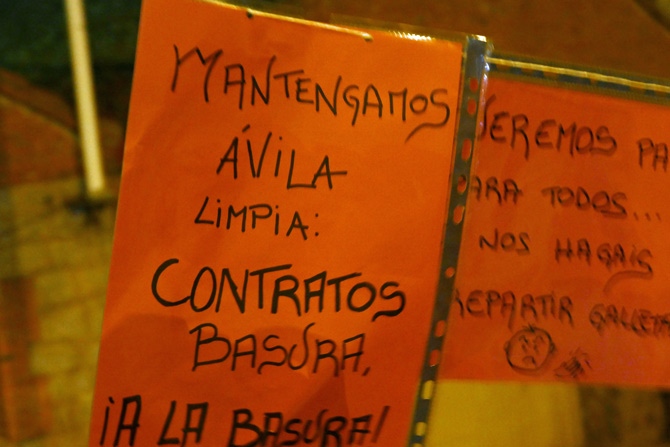 MANTENGAMOS
ÁVILA
LIMPIA:
CONTRATOS
BASURA,
¡A LA BASURA!
PA
TODOS...
NOS HAGAIS
REPARTIR